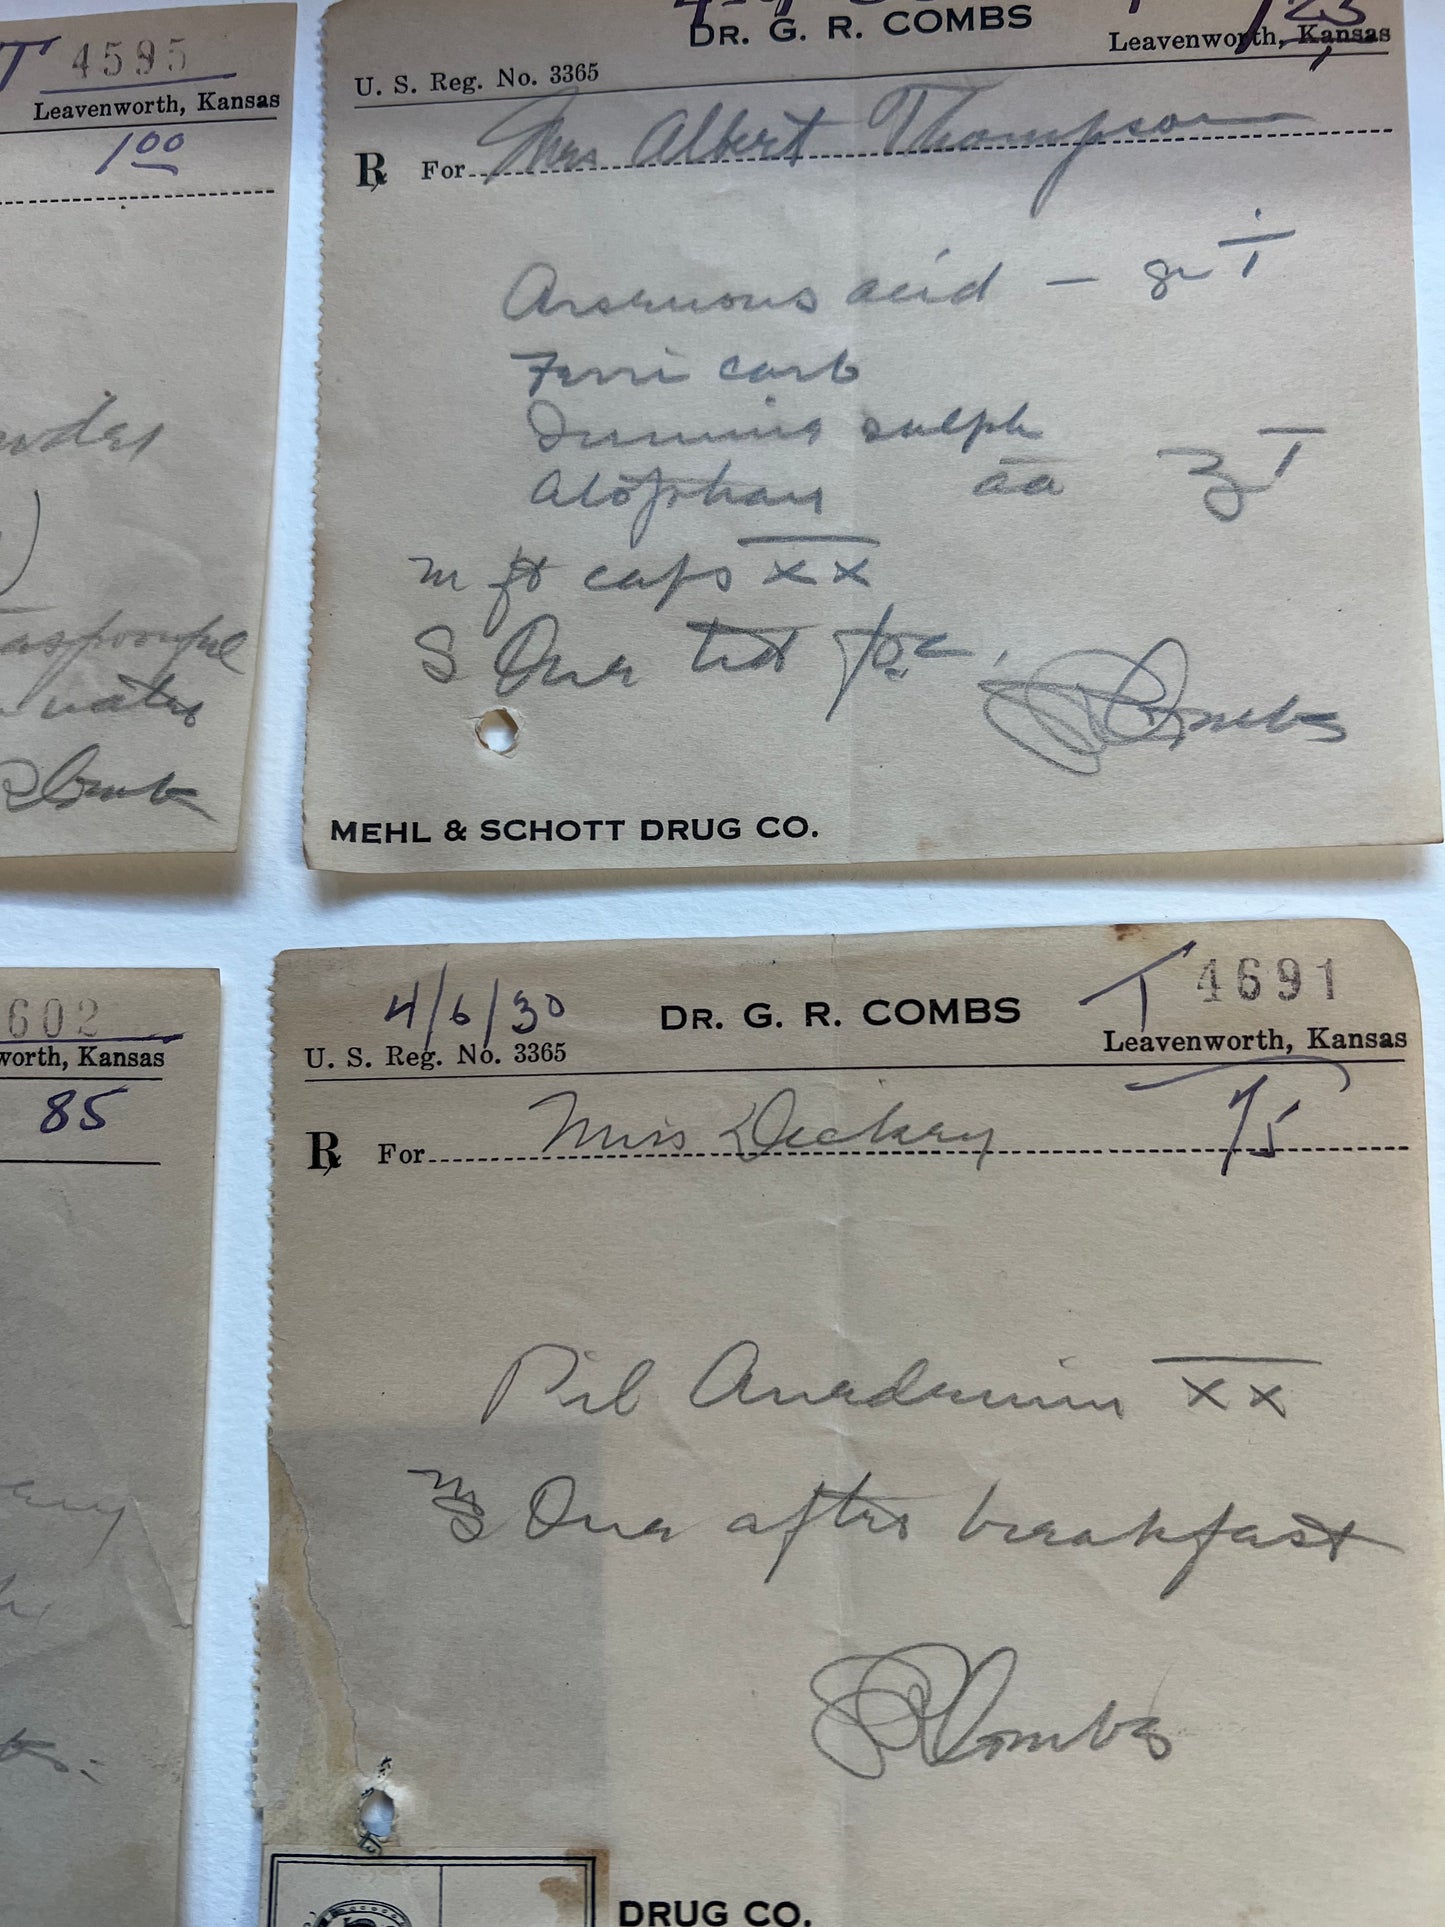 T 4595
Leavenworth, Kansas
1 00
water
Combs
DR. G. R. COMBS
1/25
Leavenworth, Kansas
U. S. Reg. No. 3365
Rx For Mrs Albert Thompson
Arsenous acid — gr i
Ferri carb
sulph
Atophan aa ʒ i
m ft caps xx
S One tid pc.
Combs
MEHL & SCHOTT DRUG CO.
602
worth, Kansas
85
4/6/30 DR. G. R. COMBS T 4691
U. S. Reg. No. 3365 Leavenworth, Kansas
Rx For Miss Dickey 75
Pil xx
S One after breakfast
G R Combs
DRUG CO.